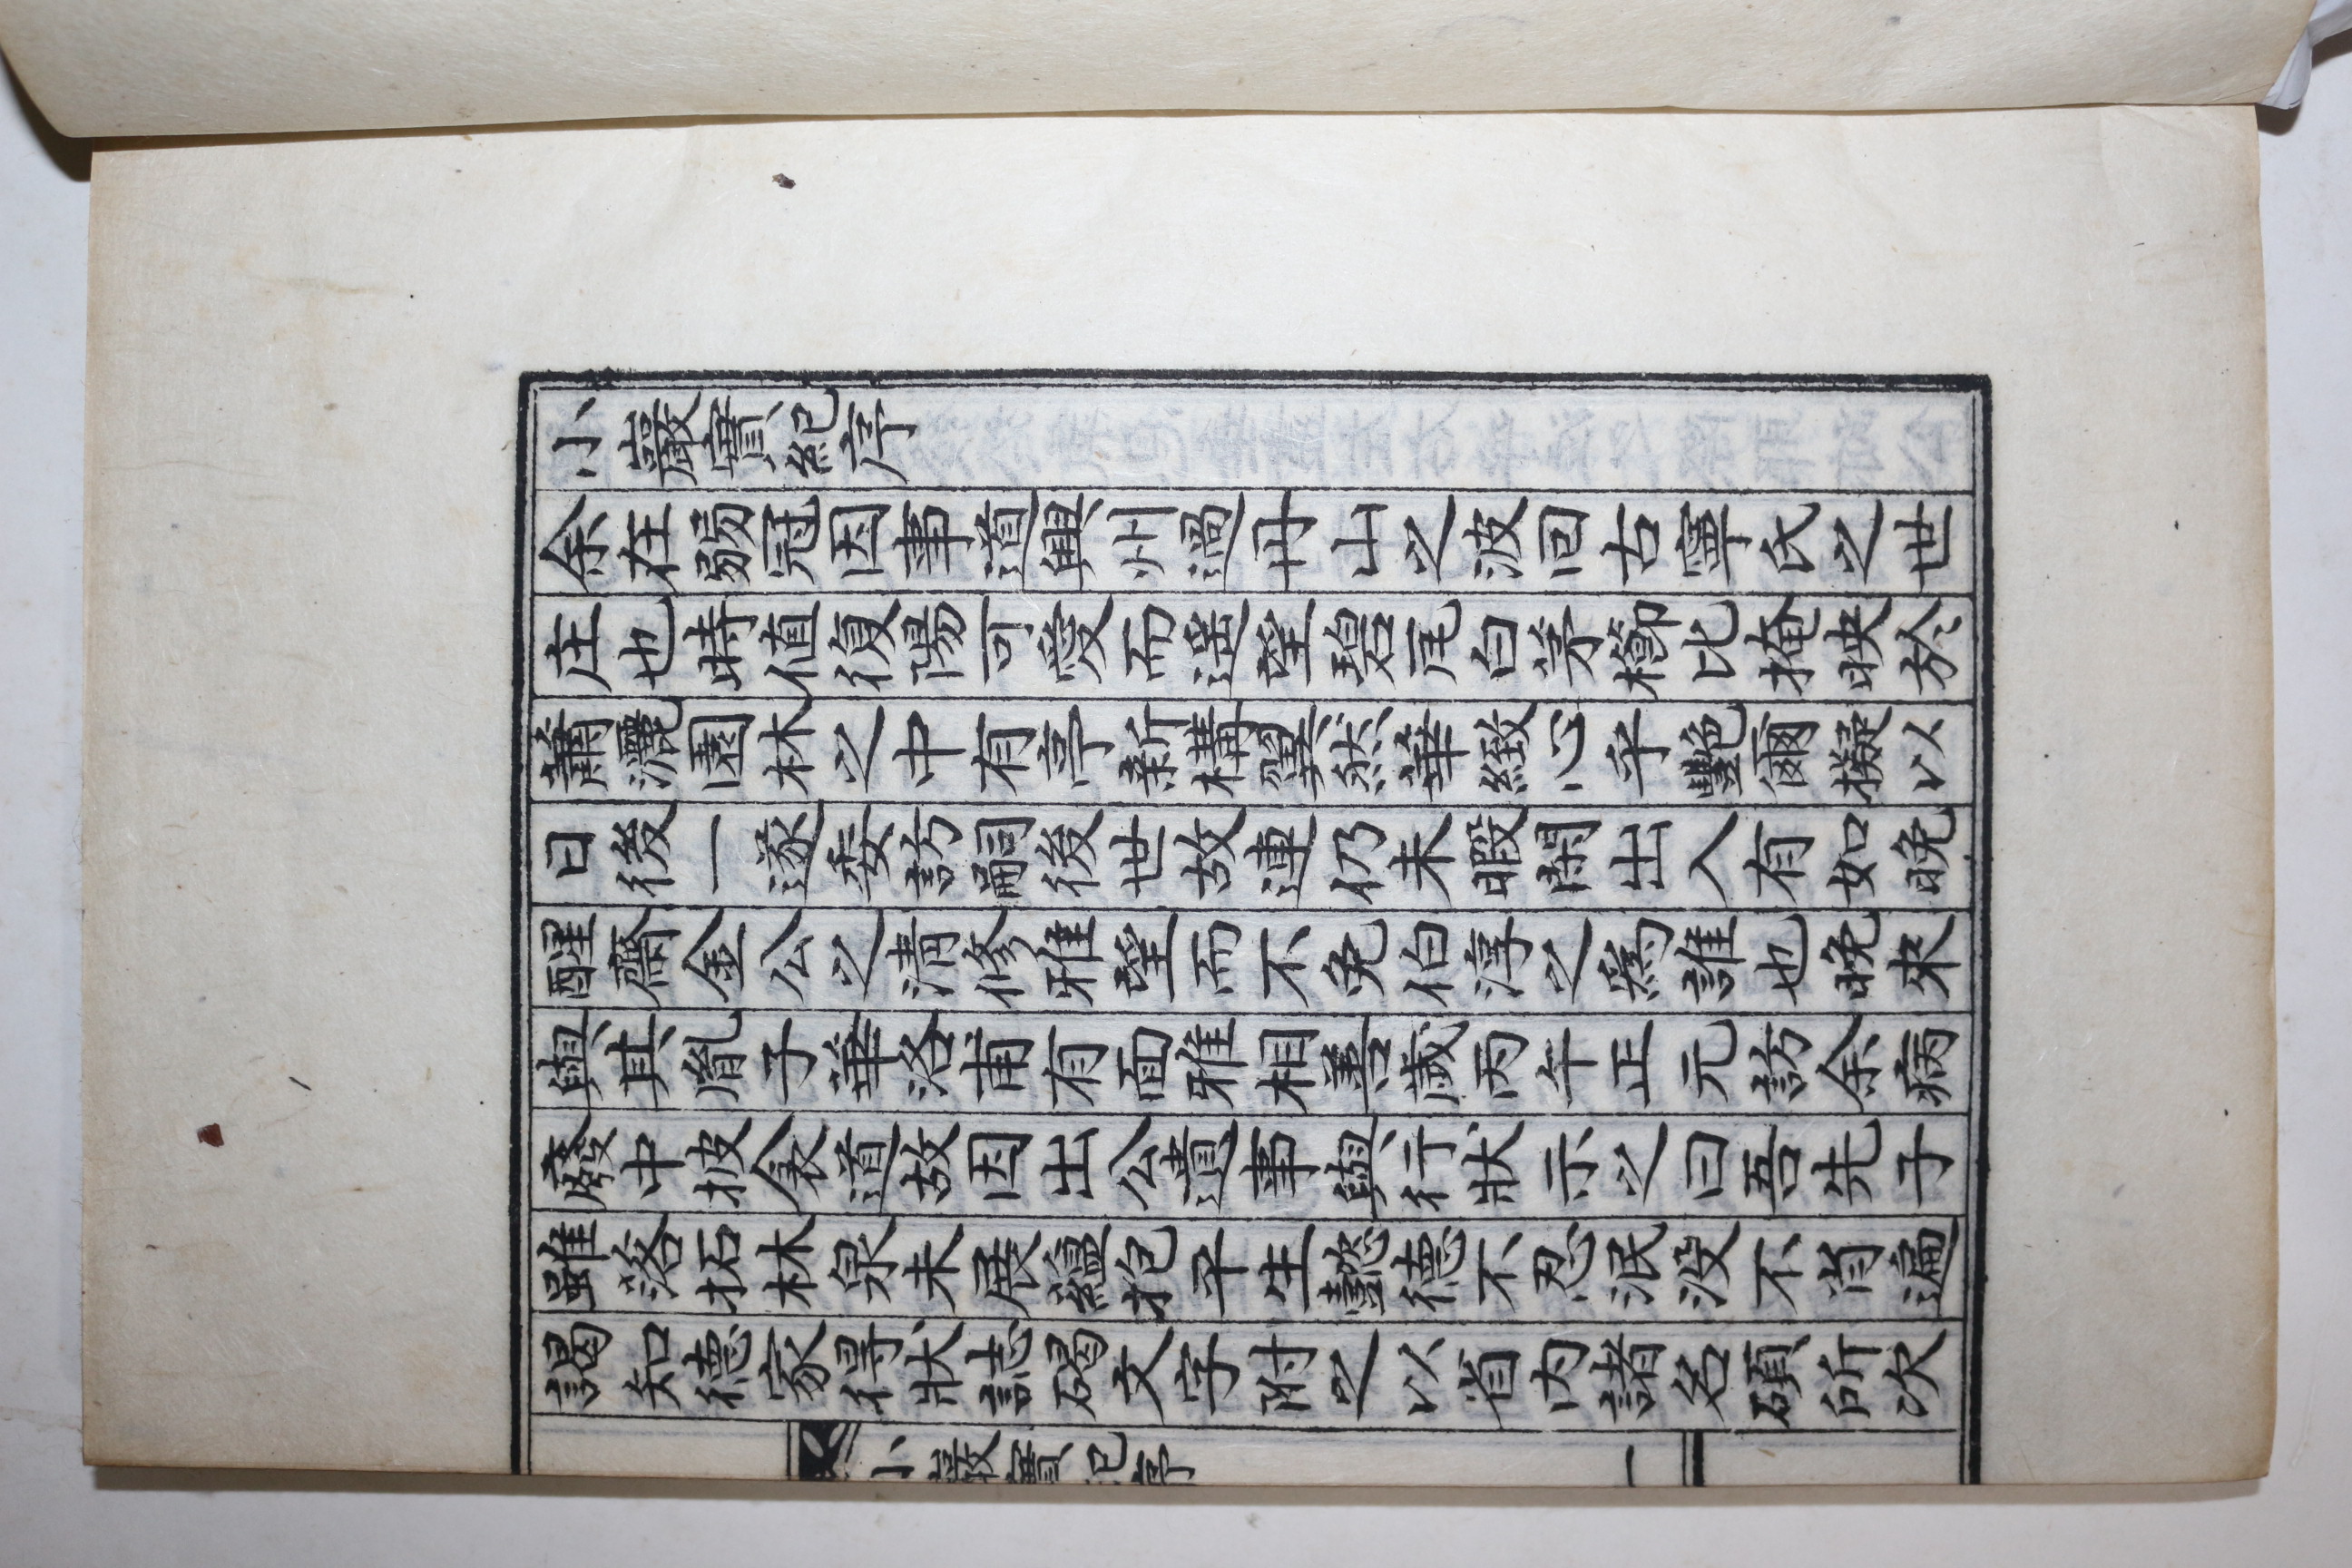 小巖實紀序
余在弱冠因事道興州過丹山之波回古寧氏之世
庄也時値復陽可愛而遥望碧瓦白茅櫛比掩映於
蕭灑園林之中有亭新構翼然華緻心乎艷爾擬以
日後一遂委訪嗣後世故連仍未暇閑出入有如晩
醒齋金公之清修雅望而不免伯淳之爲誰也晩來
與其胤子華洛甫有面雅相善歲丙午正元訪余病
廢中披衾道故因出公遺事與行狀示之曰吾先子
雖落拓林泉未展蘊抱平生懿德不忍泯没不肖遍
謁知德家得狀誌碣文字附之以省内諸名碩所次
小巖實紀序 一